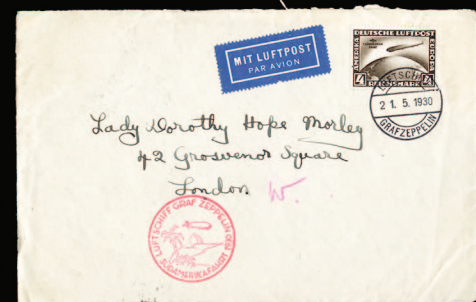 MIT LUFTPOST
PAR AVION
DEUTSCHE LUFTPOST
AMERIKA
EUROPA
4 REICHSMARK 4
LUFTSCHIFF
21.5.1930
GRAF ZEPPELIN
Lady Dorothy Hope Morley
42 Grosvenor Square
London W.
LUFTSCHIFF GRAF ZEPPELIN 1930
SÜDAMERIKAFAHRT